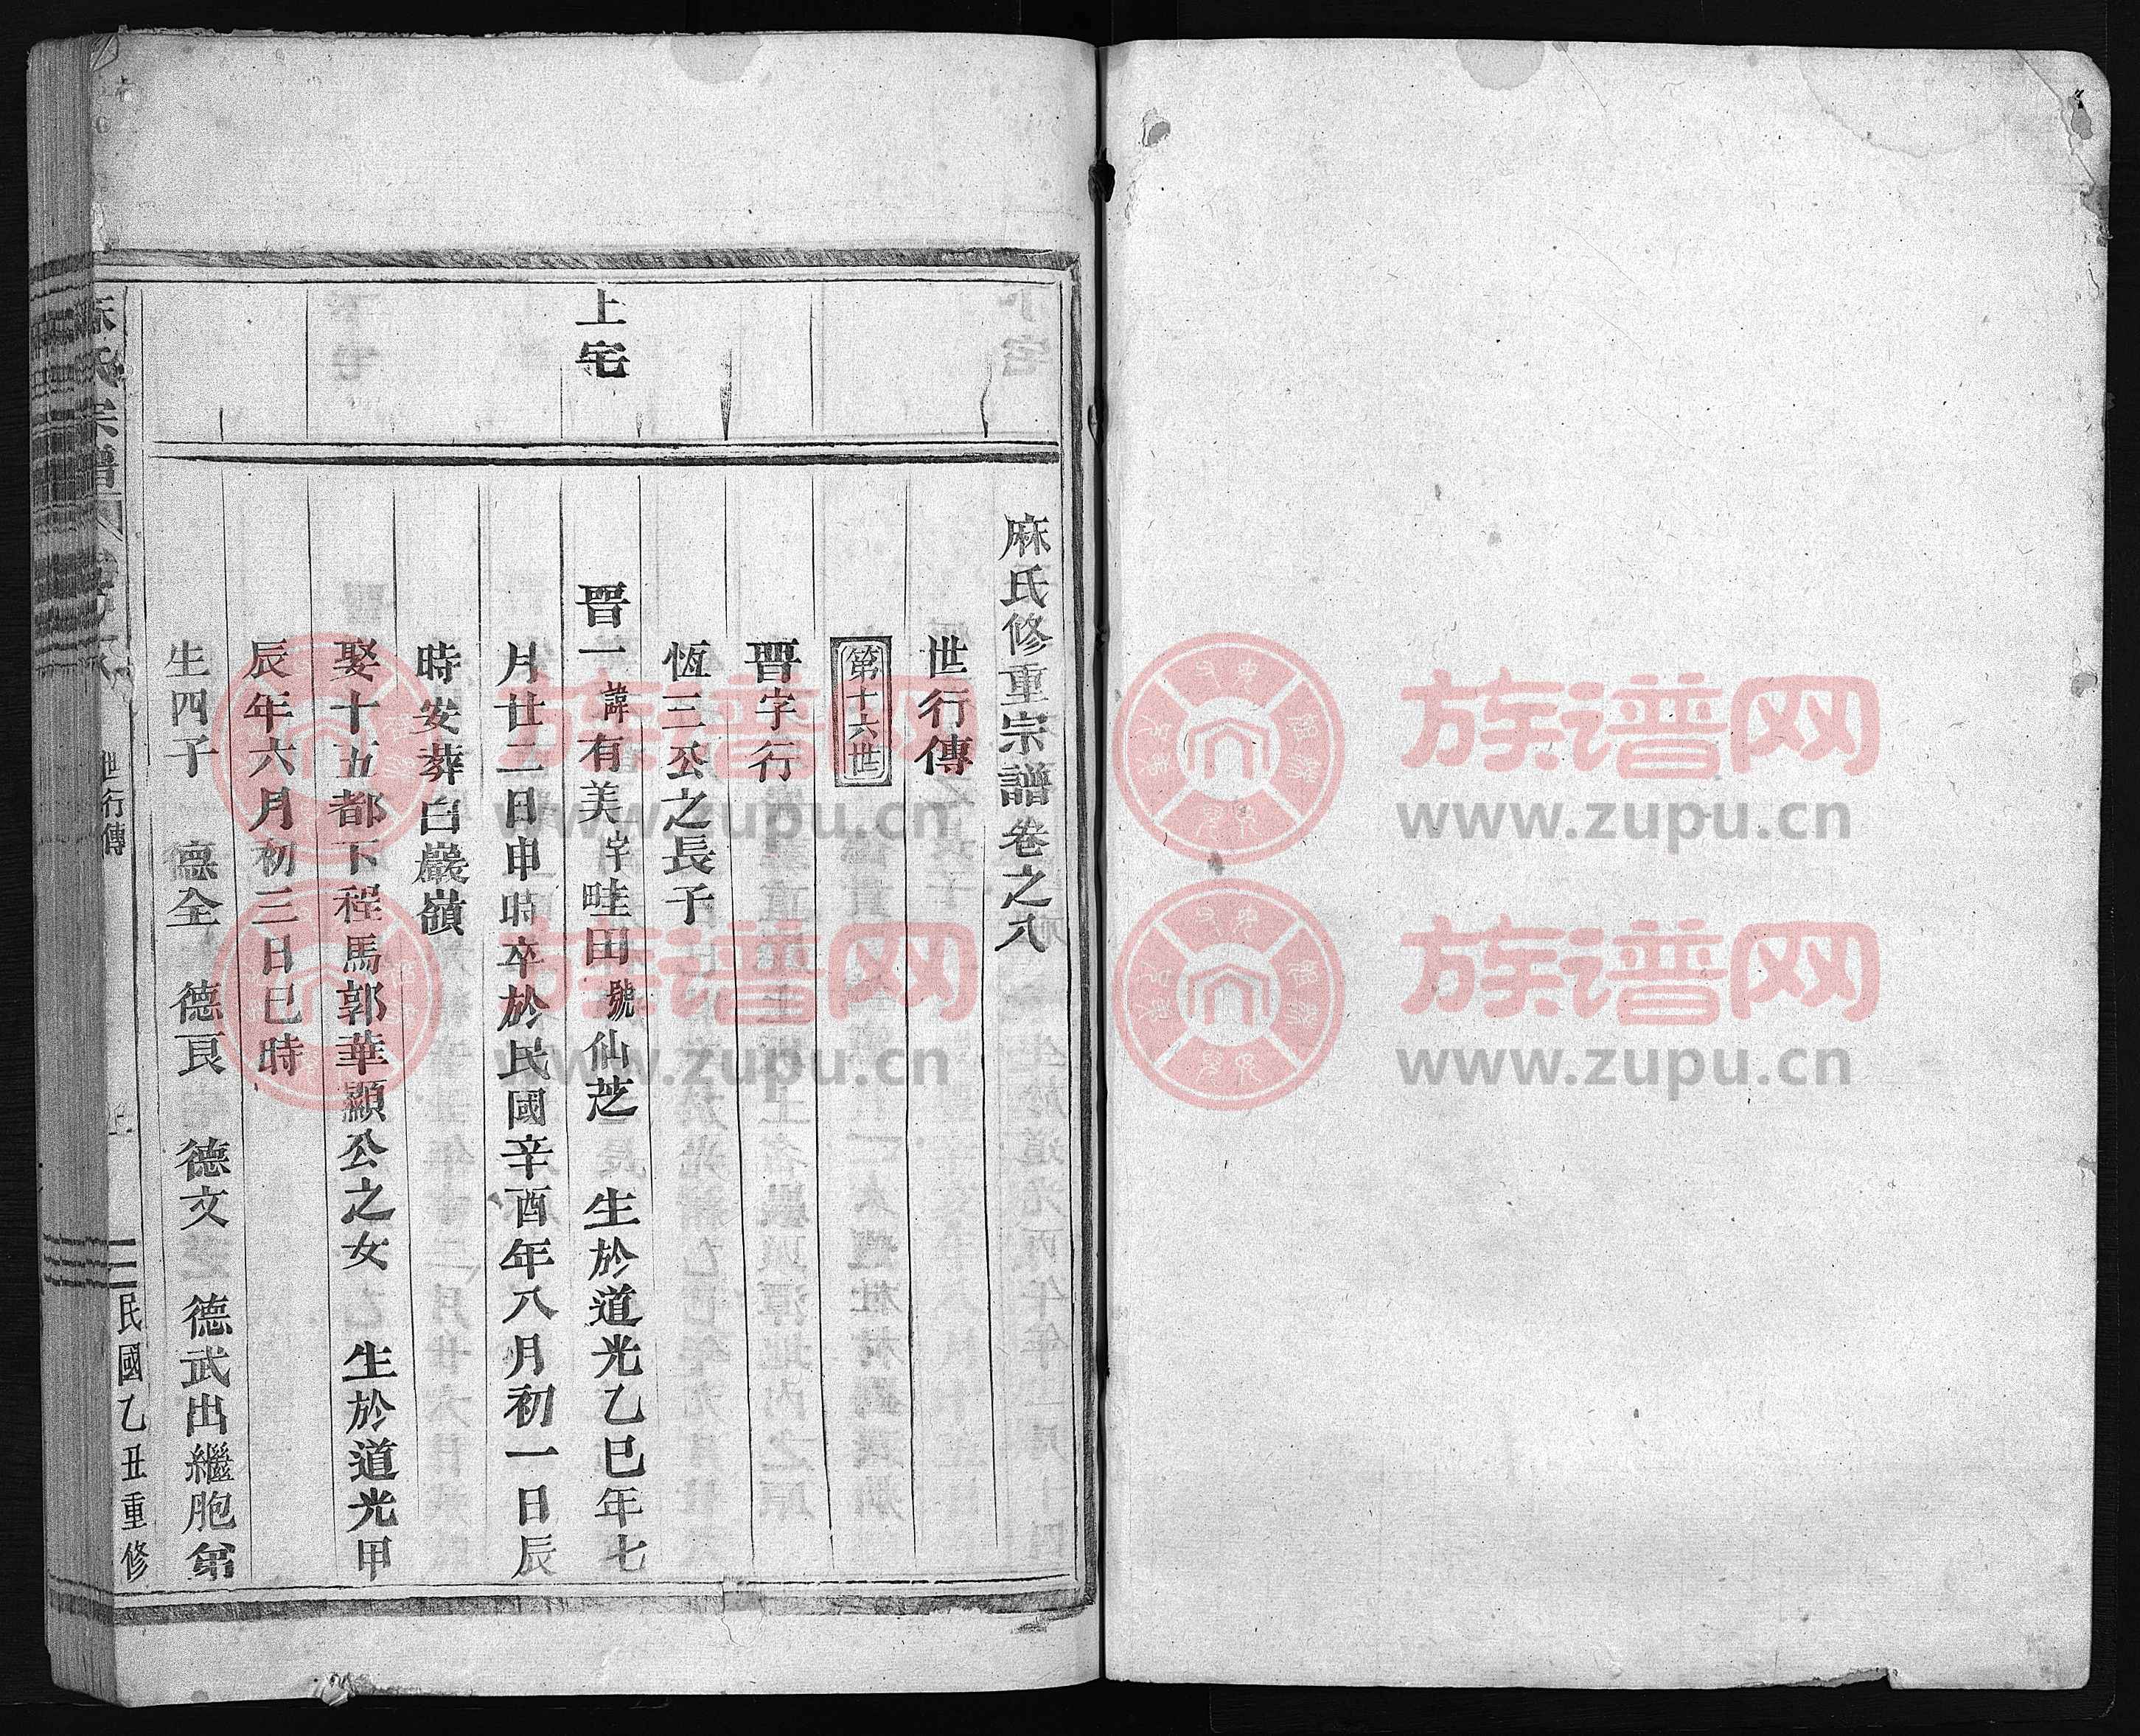 麻氏修重宗譜卷之八
世行傳
第十六世
晋字行
恆三公之長子
上宅
晋一諱有美岸畦田號仙芝 生於道光乙巳年七
月廿二日申時卒於民國辛酉年八月初一日辰
時安葬白巖嶺
娶十五都下程馬郭華顯公之女 生於道光甲
辰年六月初三日巳時
生四子 德全 德良 德文 德武出繼胞弟
麻氏宗譜
世行傳
民國乙丑重修
族谱网
www.zupu.cn
族谱网
www.zupu.cn
族谱网
www.zupu.cn
族谱网
www.zupu.cn